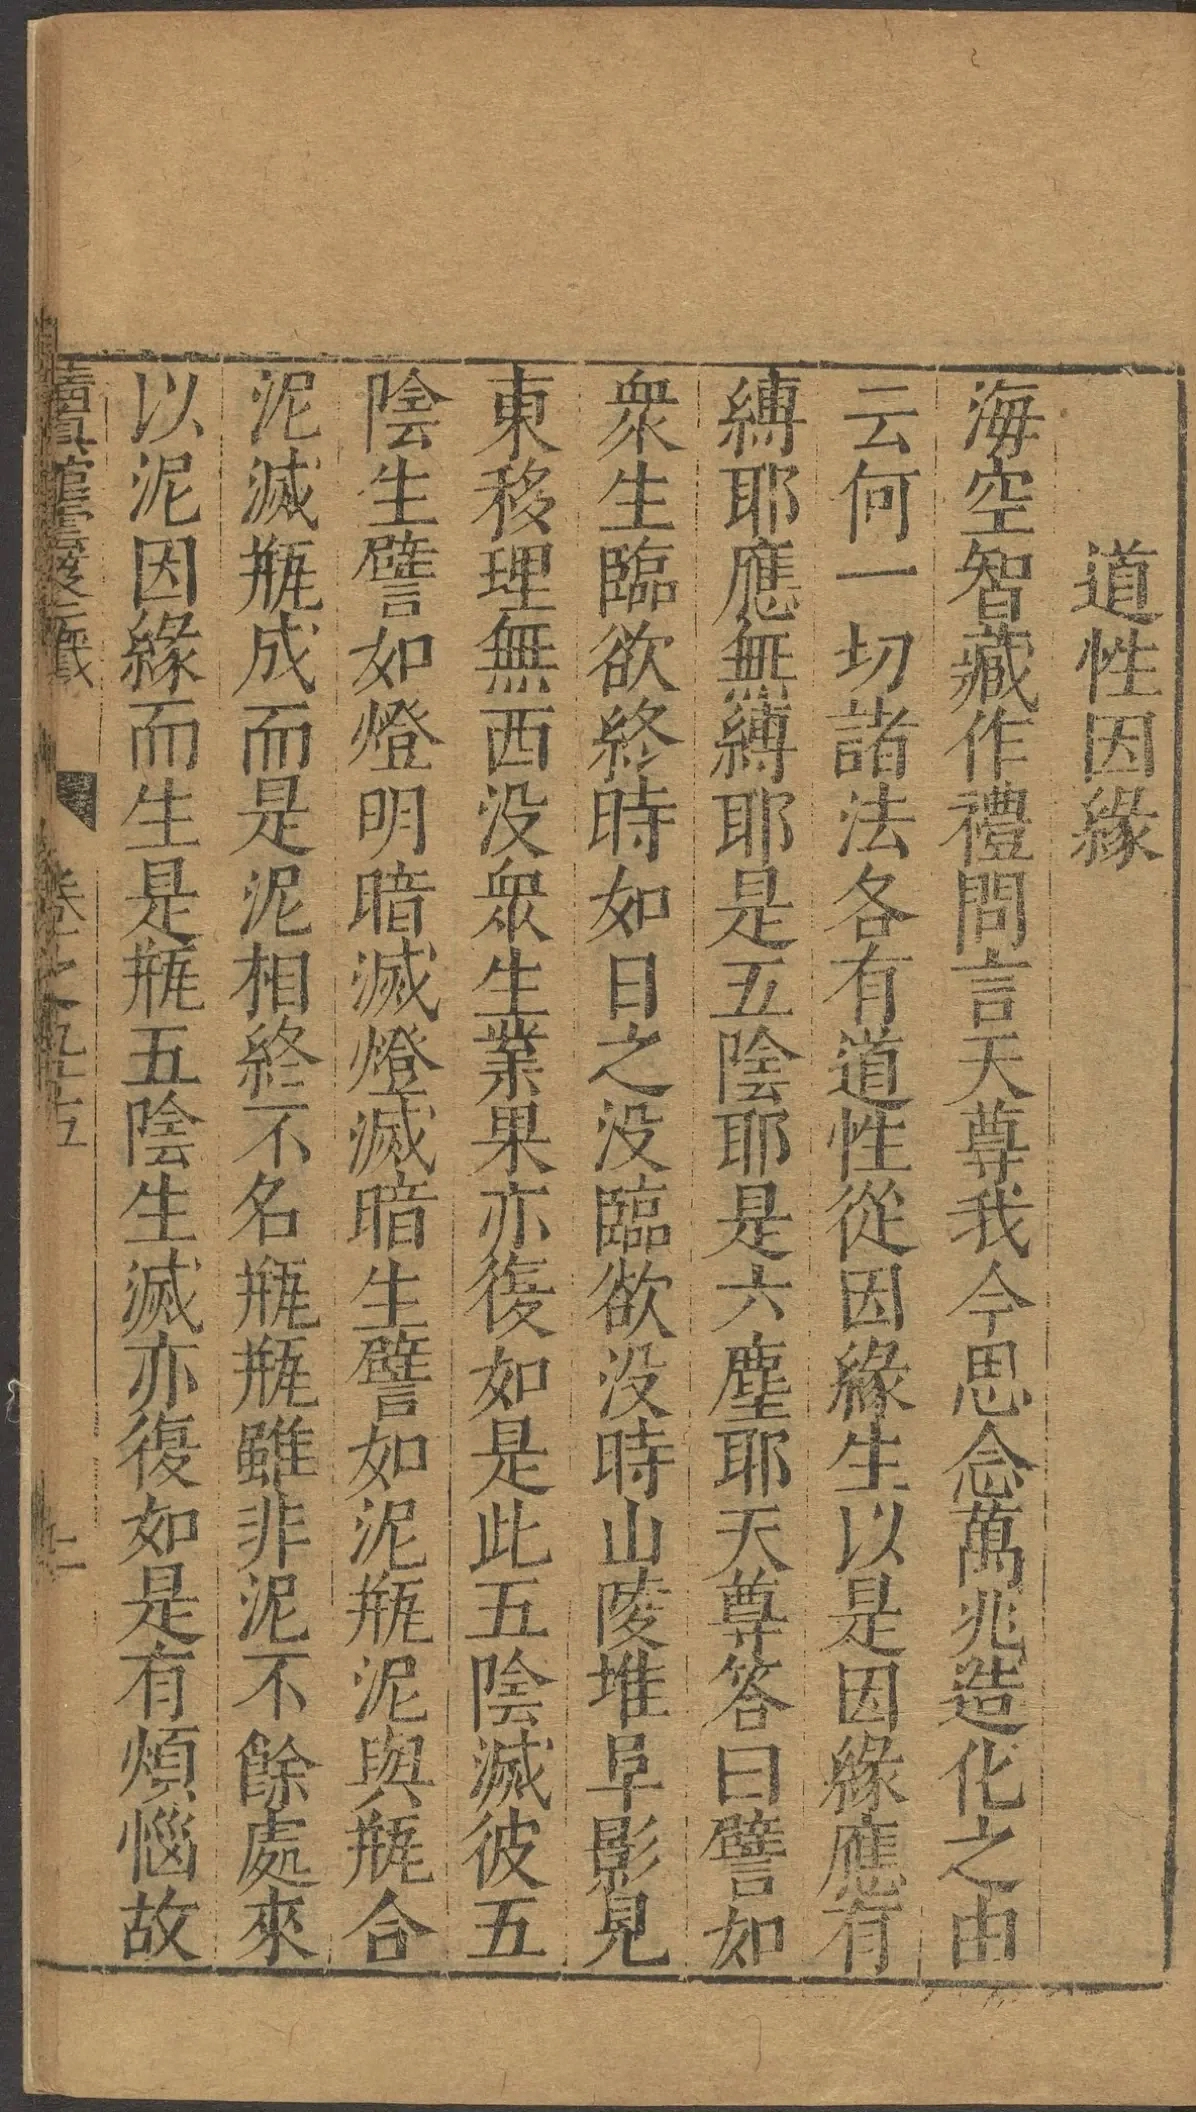 道性因緣
海空智藏作禮問言天尊我今思念萬兆造化之由
云何一切諸法各有道性從因緣生以是因緣應有
縛耶應無縛耶是五陰耶是六塵耶天尊答曰譬如
衆生臨欲終時如日之没臨欲没時山陵堆阜影見
東移理無西没衆生業果亦復如是此五陰滅彼五
陰生譬如燈明暗滅燈滅暗生譬如泥瓶泥與瓶合
泥滅瓶成而是泥相終不名瓶瓶雖非泥不餘處來
以泥因緣而生是瓶五陰生滅亦復如是有煩惱故
卷之九十五